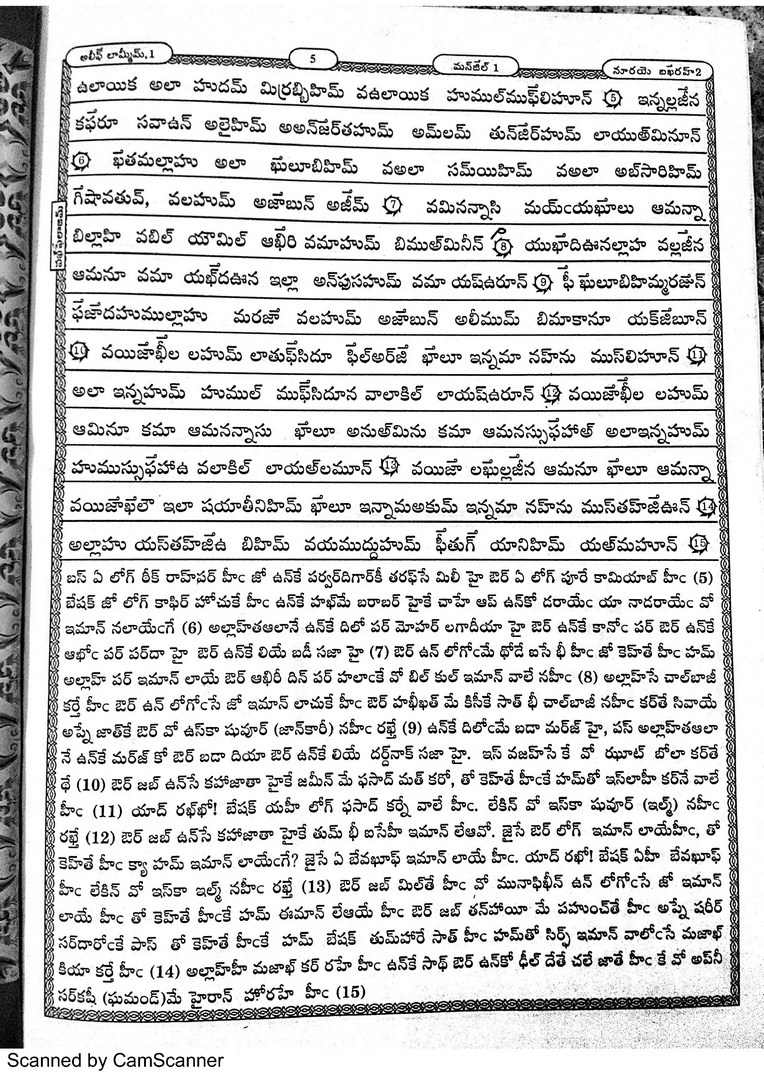 అలీఫ్ లామ్మీమ్.1
5
మన్‌జేల్ 1
సూరయె బఖేరహ్2
ఉలాయిక అలా హుదమ్ మిర్రబ్బిహిమ్ వఉలాయిక హుముల్‌ముఫ్‌లిహూన్ 5 ఇన్నల్లజేన
కఫేరూ సవాఉన్ అలైహిమ్ అఅన్‌జేర్‌తహుమ్ అమ్‌లమ్ తున్‌జేర్‌హుమ్ లాయుత్‌మినూన్
6 ఖేతమల్లాహు అలా ఖేులూబిహిమ్ వఅలా సమ్‌యిహిమ్ వఅలా అబ్‌సారిహిమ్
గేషావతువ్, వలహుమ్ అజేాబున్ అజీేమ్ 7 వమినన్నాసి మయ్ఁయఖేాలు ఆమన్నా
బిల్లాహి వబిల్ యౌమిల్ ఆఖీేరి వమాహుమ్ బిముత్‌మినీన్ 8 యుఖాేదిఊనల్లాహ వల్లజీేన
ఆమనూ వమా యఖ్‌దఊన ఇల్లా అన్‌ఫుసహుమ్ వమా యష్‌ఉరూన్ 9 ఫీే ఖేులూబిహిమ్మరజేున్
ఫేజాేదహుముల్లాహు మరజేా వలహుమ్ అజాేబున్ అలీముమ్ బిమాకానూ యక్‌జేబూన్
10 వయిజాేఖీేల లహుమ్ లాతుఫ్‌సిదూ ఫిేల్‌అర్‌జే ఖాేలూ ఇన్నమా నహ్‌ను ముస్‌లిహూన్ 11
అలా ఇన్నహుమ్ హుముల్ ముఫ్‌సిదూన వాలాకిల్ లాయష్‌ఉరూన్ 12 వయిజాేఖీేల లహుమ్
ఆమినూ కమా ఆమనన్నాసు ఖాేలూ అనుత్‌మిను కమా ఆమనస్సుఫేహాత్ అలాఇన్నహుమ్
హుముస్సుఫేహాఉ వలాకిల్ లాయత్‌లమూన్ 13 వయిజాే లఖేుల్లజీేన ఆమనూ ఖాేలూ ఆమన్నా
వయిజాేఖేలౌ ఇలా షయాతీనిహిమ్ ఖాేలూ ఇన్నామఅకుమ్ ఇన్నమా నహ్‌ను ముస్‌తహ్‌జిేఊన్ 14
అల్లాహు యస్‌తహ్‌జిేఉ బిహిమ్ వయముద్దుహుమ్ ఫీేతుగ్ యానిహిమ్ యత్‌మహూన్ 15
బస్ ఏ లోగ్ ఠీక్ రాహ్‌పర్ హీఁ జో ఉన్‌కే పర్వర్‌దిగార్‌కీ తరఫ్‌సే మిలీ హై ఔర్ ఏ లోగ్ పూరే కామియాబ్ హీఁ (5)
బేషక్ జో లోగ్ కాఫిర్ హోచుకే హీఁ ఉన్‌కే హఖ్‌మే బరాబర్ హైకే చాహే ఆప్ ఉన్‌కో దరాయేఁ యా నాదరాయేఁ వో
ఇమాన్ నలాయేఁగే (6) అల్లాహ్‌తఆలానే ఉన్‌కే దిలో పర్ మోహర్ లగాదీయా హై ఔర్ ఉన్‌కే కానోఁ పర్ ఔర్ ఉన్‌కే
ఆఖోఁ పర్ పర్‌దా హై ఔర్ ఉన్‌కే లియే బడీ సజా హై (7) ఔర్ ఉన్ లోగోఁమే థోడే ఐసే భీ హీఁ జో కెహ్‌తే హీఁ హమ్
అల్లాహ్ పర్ ఇమాన్ లాయే ఔర్ ఆఖిరీ దిన్ పర్ హలాఁకే వో బిల్ కుల్ ఇమాన్ వాలే నహీఁ (8) అల్లాహ్‌సే చాల్‌బాజీ
కర్తే హీఁ ఔర్ ఉన్ లోగోఁసే జో ఇమాన్ లాచుకే హీఁ ఔర్ హఖీఖత్ మే కిసీకే సాత్ భీ చాల్‌బాజీ నహీఁ కర్‌తే సివాయే
అప్నే జాత్‌కే ఔర్ వో ఉస్‌కా షువూర్ (జాన్‌కారీ) నహీఁ రఖ్తే (9) ఉన్‌కే దిలోఁమే బడా మర్‌జ్ హై, పస్ అల్లాహ్‌తఆలా
నే ఉన్‌కే మర్‌జ్ కో ఔర్ బదా దియా ఔర్ ఉన్‌కే లియే దర్ద్‌నాక్ సజా హై. ఇస్ వజహ్‌సే కే వో ఝూట్ బోలా కర్‌తే
థే (10) ఔర్ జబ్ ఉన్‌సే కహాజాతా హైకే జమీన్ మే ఫసాద్ మత్ కరో, తో కెహ్‌తే హీఁకే హమ్‌తో ఇస్‌లాహీ కర్‌నే వాలే
హీఁ (11) యాద్ రఖ్‌ఖో! బేషక్ యహీ లోగ్ ఫసాద్ కర్నే వాలే హీఁ. లేకిన్ వో ఇస్‌కా షువూర్ (ఇల్మ్) నహీఁ
రఖ్తే (12) ఔర్ జబ్ ఉన్‌సే కహాజాతా హైకే తుమ్ భీ ఐసేహీ ఇమాన్ లేఆవో. జైసే ఔర్ లోగ్ ఇమాన్ లాయేహీఁ, తో
కెహ్‌తే హీఁ క్యా హమ్ ఇమాన్ లాయేఁగే? జైసే ఏ బేవఖూఫ్ ఇమాన్ లాయే హీఁ. యాద్ రఖో! బేషక్ ఏహీ బేవఖూఫ్
హీఁ లేకిన్ వో ఇస్‌కా ఇల్మ్ నహీఁ రఖ్తే (13) ఔర్ జబ్ మిల్‌తే హీఁ వో మునాఫిఖీన్ ఉన్ లోగోఁసే జో ఇమాన్
లాయే హీఁ తో కెహ్‌తే హీఁకే హమ్ ఈమాన్ లేఆయే హీఁ ఔర్ జబ్ తన్‌హాయీ మే పహుంచ్‌తే హీఁ అప్నే షరీర్
సర్‌దారోఁకే పాస్ తో కెహ్‌తే హీఁకే హమ్ బేషక్ తుమ్‌హారే సాత్ హీఁ హమ్‌తో సిర్ఫ్ ఇమాన్ వాలోఁసే మజాఖ్
కియా కర్తే హీఁ (14) అల్లాహ్‌హీ మజాఖ్ కర్ రహే హీఁ ఉన్‌కే సాథ్ ఔర్ ఉన్‌కో ఢీల్ దేతే చలే జాతే హీఁ కే వో అప్‌నీ
సర్‌కషీ (ఘమండ్)మే హైరాన్ హోరహే హీఁ (15)
Scanned by CamScanner